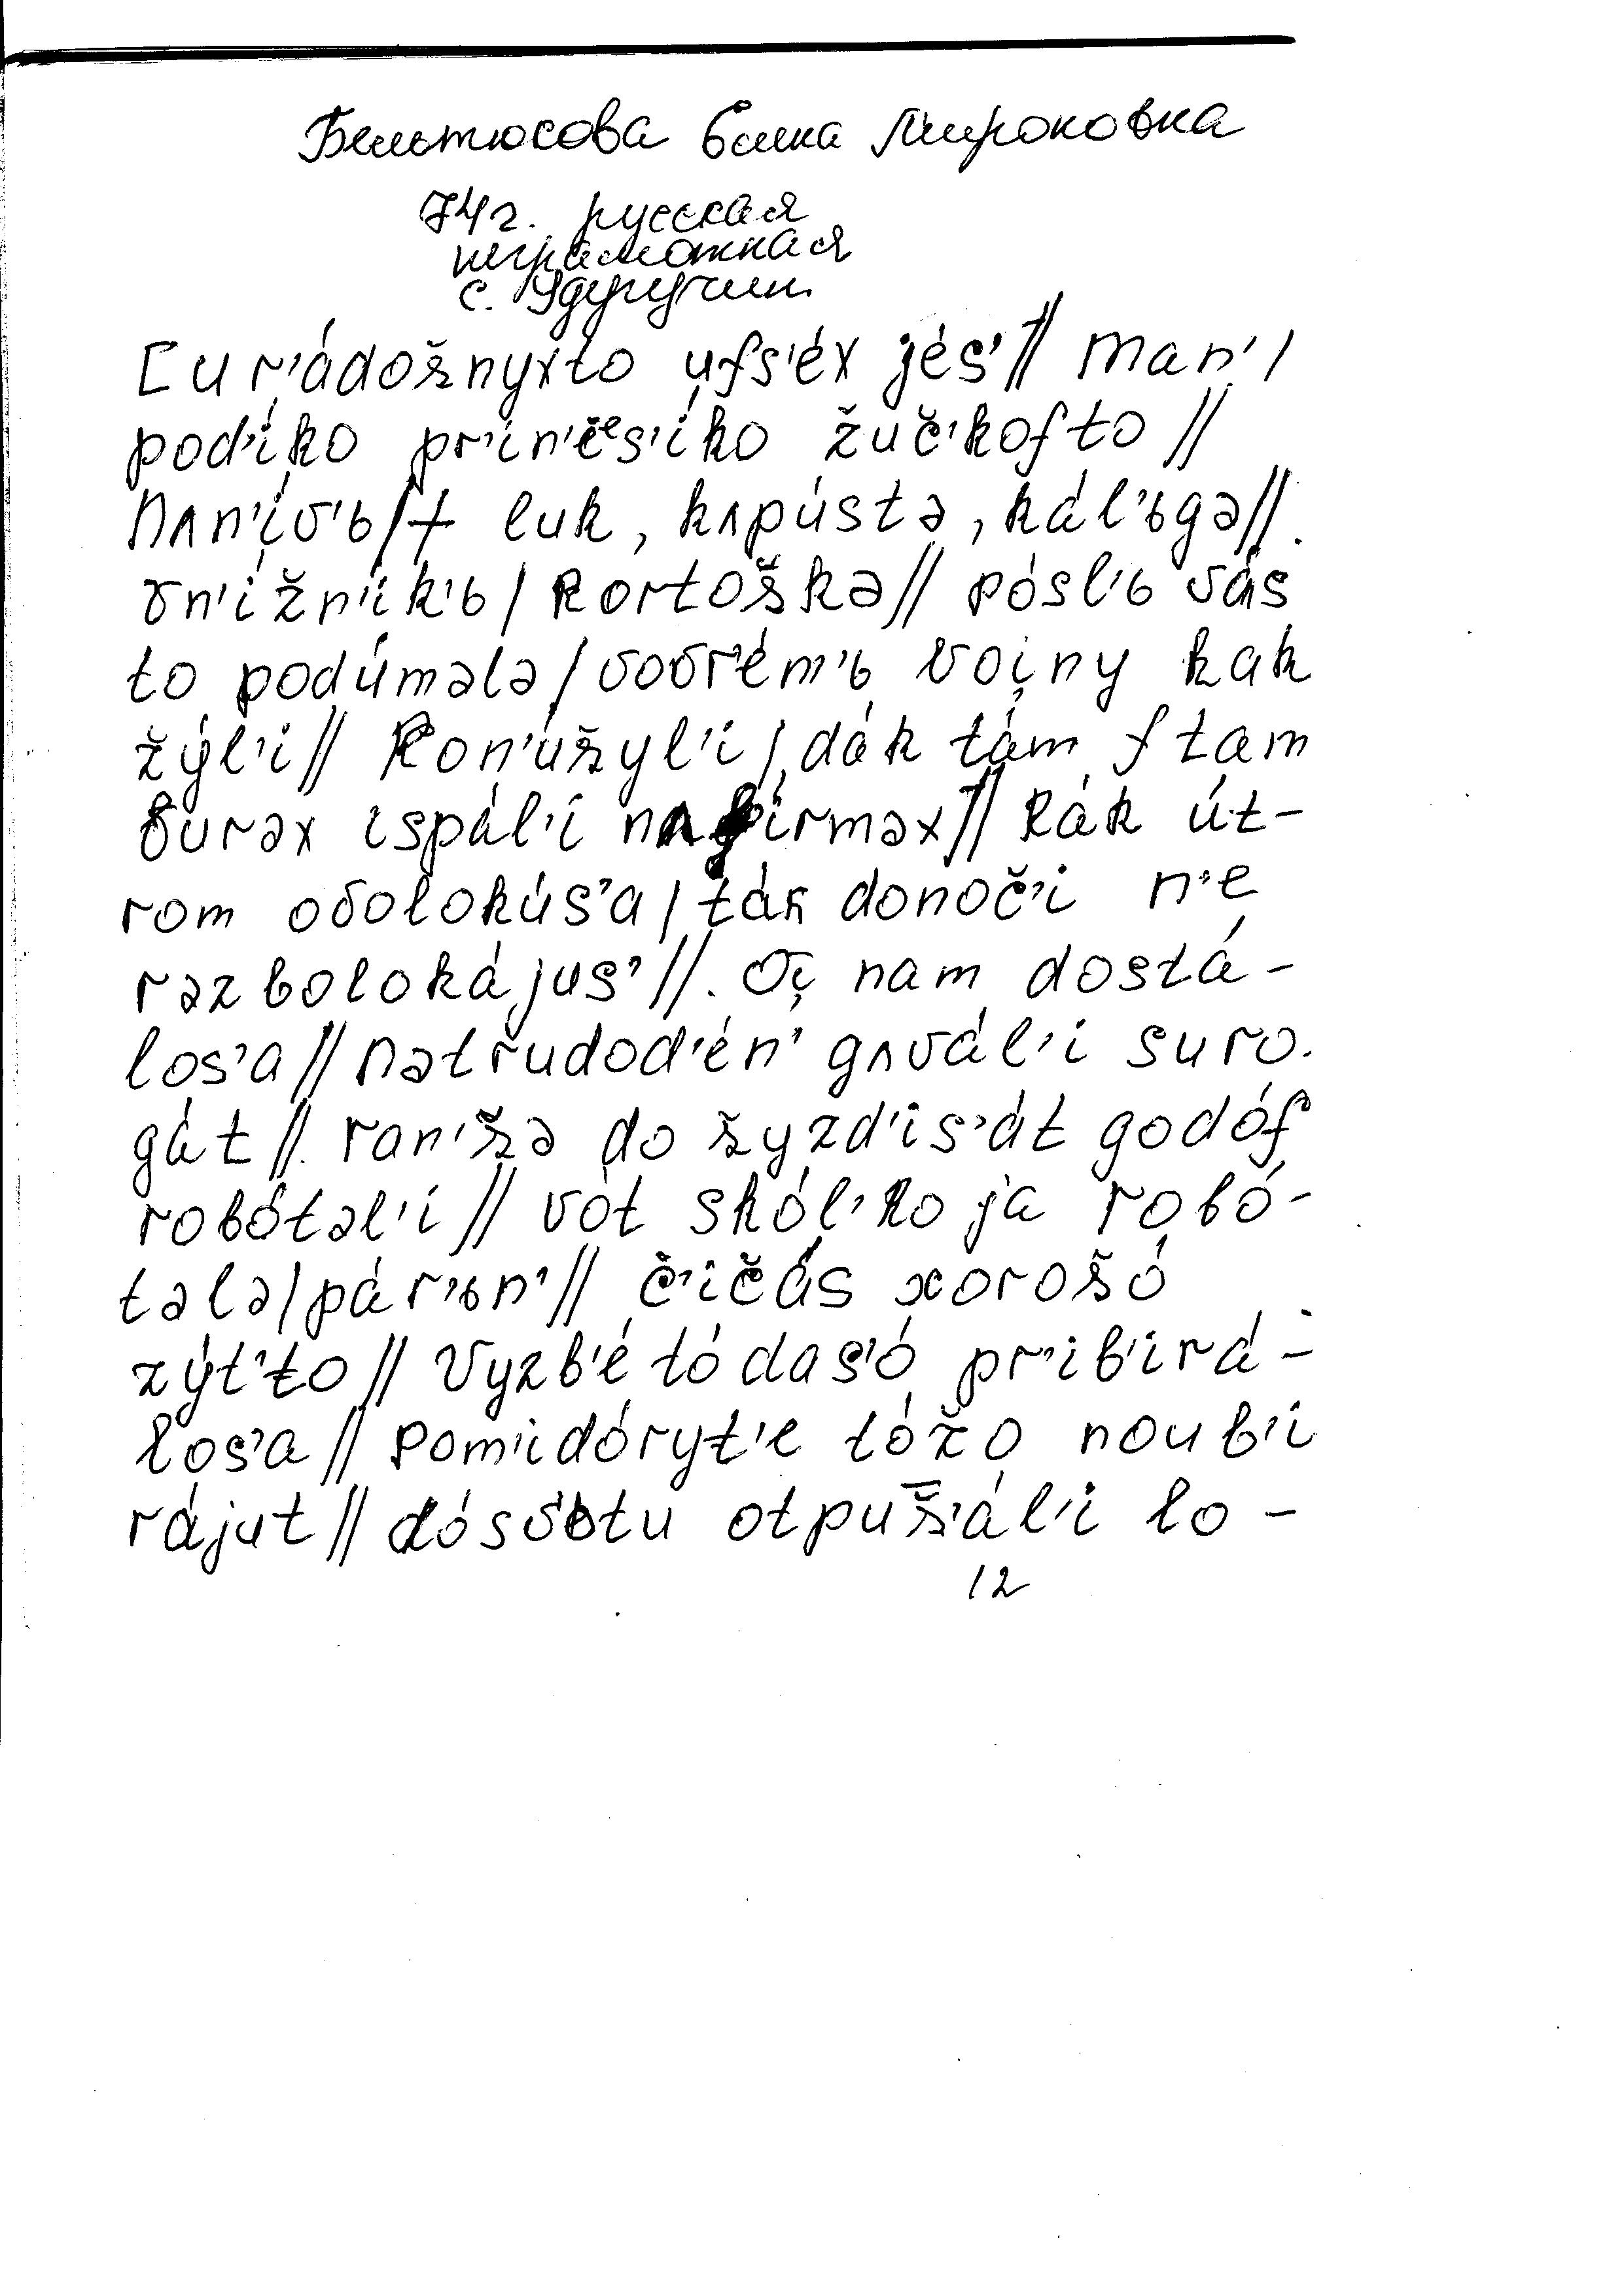 Бельтюсова Мироновна
74г. русская
неграмотная
с.
[ u r'ádošnyxto u̯fs'éx jés'// man'/
pod'íko pr'in'es'íko žuč'kofto //
nʌn'i̯v'ь/+ luk, kʌpústə, kál'ьgə//.
vn'ižn'ík'ь/ kortoškə// pósl'ь vás
to podúmələ/ vovr'ém'ь voi̯ny kak
žýl'i// kon'úšyl'i/ dák tám f tam
burəx ispál'i nʌ írməx// kák út-
rom obolokús'a/ ták donoč'i n'e
rəzbolokájus'//. Oi̯ nam dostá-
los'a// nətrudod'én' gʌvál'i suro-
gát//. ran'šə do šyzd'is'át godóf
robótəl'i// vót skól'ko ja robó-
tələ/ pár'ьn'// č'ičás xorošó
žýt'to// vyzb'é tó das'ó pr'ib'irá-
los'a// pom'idóryt'e tóžo noub'i
rájut// dós v'ьtu otpuš'ál'i lo-
12